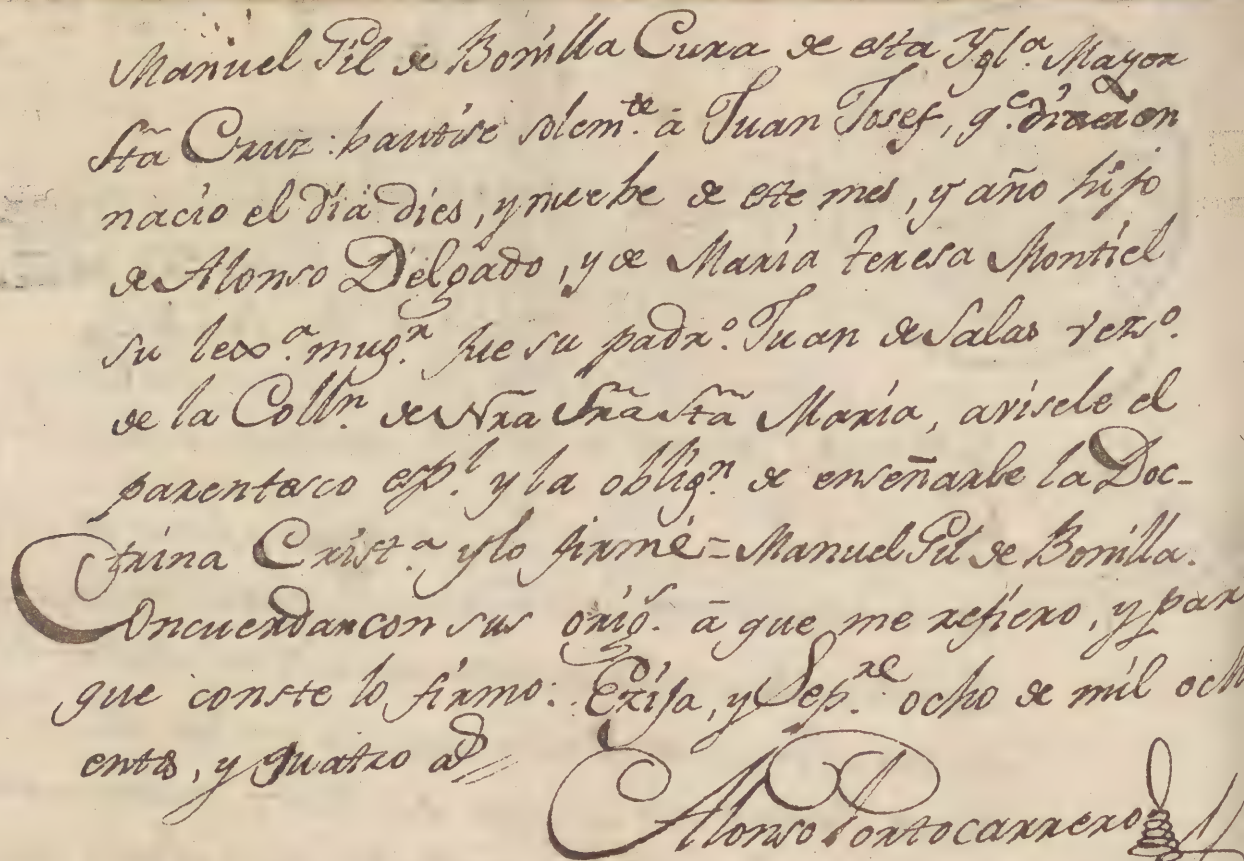 Manuel Gil de Bonilla Cura de esta Ygl.ª Mayor
Sta Cruz: bautise solem.te a Juan Josef, q.e dixeron
nacio el dia dies, y nuebe de este mes, y año hijo
de Alonso Delgado, y de Maria teresa Montiel
su lex.ª mug.r fue su padr.º Juan de Salas vez.º
de la Coll.n de Nra Sra Sta Maria, avisele el
parentesco esp.l y la oblig.n de enseñarle la Doc-
trina Crist.ª y lo firmé = Manuel Gil de Bonilla.
Concuerdan con sus orig.s a que me refiero, y par
que conste lo firmo: Ezija, y Sep.re ocho de mil och
entos, y quatro a.s
Alonso Portocarrero